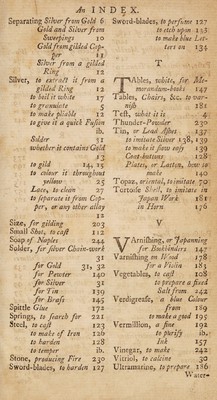 An INDEX.
Separating Silver from Gold 6
Gold and Silver from
Sweepings 10
Gold from gilded Cop-
per 11
Silver from a gilded
Ring 12
Silver, to extract it from a
gilded Ring 12
to boil it white 17
to granulate 5
to make pliable 12
to give it a quick Fusion
ib.
Solder 31
whether it contains Gold
13
to gild 14, 15
to colour it throughout
yellow 25
Lace, to clean 27
to separate it from Cop-
per, or any other alloy
12
Size, for gilding 203
Small Shot, to cast 112
Soap of Naples 244
Solder, for silver Chain-work
31
for Gold 31, 32
for Pewter 140
for Silver 31
for Tin 139
for Brass 145
Spittle Glue 172
Springs, to search for 221
Steel, to cast 123
to make of Iron 126
to harden 128
to temper ib.
Stone, producing Fire 230
Sword-blades, to harden 127
Sword-blades, to perfume 127
to etch upon 135
to make blue Let-
ters on 134
T
Tables, white, for Me-
morandum-books 147
Tables, Chairs, &c. to var-
nish 181
Test, what it is 4
Thunder-Powder 230
Tin, or Lead Ashes 137
to imitate Silver 138, 139
to make it flow easy 139
Coat-buttons 128
Plates, or Latton, how to
make 140
Topaz, oriental, to imitate 70
Tortoise Shell, to imitate in
Japan Work 181
in Horn 176
V
Varnishing, or Japanning
for Bookbinders 147
Varnishing on Wood 178
for a Violin 185
Vegetables, to cast 108
to prepare a fixed
Salt from 242
Verdigrease, a blue Colour
from 189
to make a good 189
Vermillion, a fine 192
to purify ib.
Ink 157
Vinegar, to make 242
Vitriol, to calcine 30
Ultramarine, to prepare 186
Water-